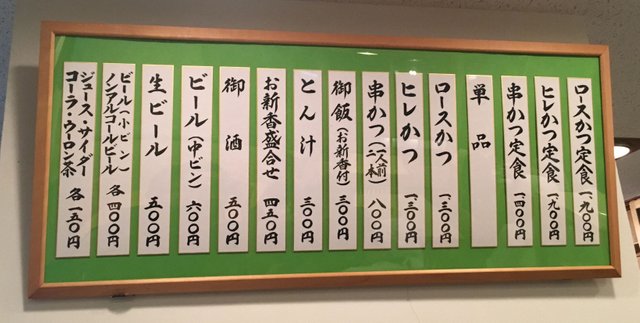 ロースかつ定食 一、九〇〇円
ヒレかつ定食 一、九〇〇円
串かつ定食 一四〇〇円
単品
ロースかつ 一、三〇〇円
ヒレかつ 一、三〇〇円
串かつ（一人前二本） 八〇〇円
御飯（お新香付） 三〇〇円
とん汁 三〇〇円
お新香盛合せ 四五〇円
御酒 五〇〇円
ビール（中ビン） 六〇〇円
生ビール 五〇〇円
ビール（小ビン）
ノンアルコールビール 各四〇〇円
ジュース・サイダー
コーラ・ウーロン茶 各一五〇円